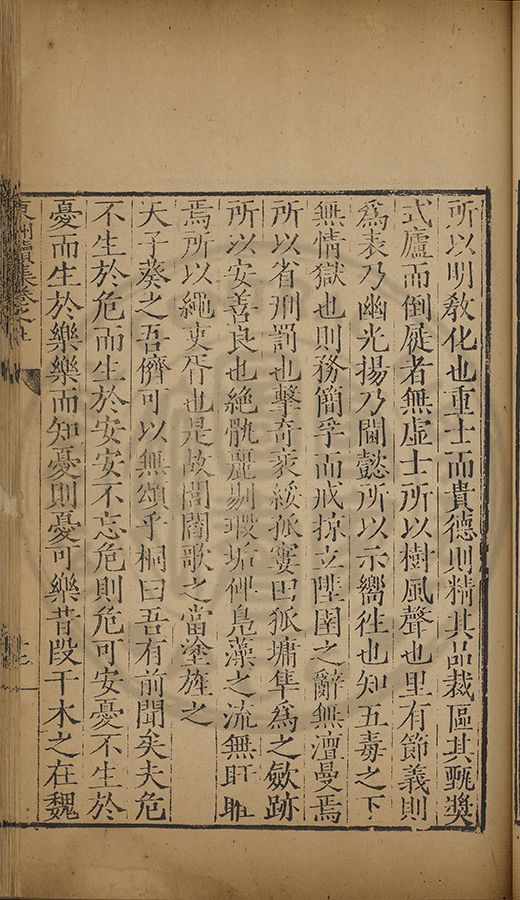 所以明敎化也重士而貴德則精其品裁區其甄奬
式廬而倒屣者無虛士所以樹風聲也里有節義則
爲表乃幽光揚乃閫懿所以示嚮徃也知五毒之下
無情獄也則務簡孚而戒掠立陛圉之辭無澶曼焉
所以省刑罰也擊奇衺綏孤寠狐墉隼爲之斂跡
所以安善良也絶骫麗剔瑕垢俾鳧藻之流無盱睢
焉所以繩吏胥也是故閭閻歌之當塗旌之
天子葵之吾儕可以無頌乎桐曰吾有前聞矣夫危
不生於危而生於安安不忘危則危可安憂不生於
憂而生於樂樂而知憂則憂可樂昔段干木之在魏
州續集卷之